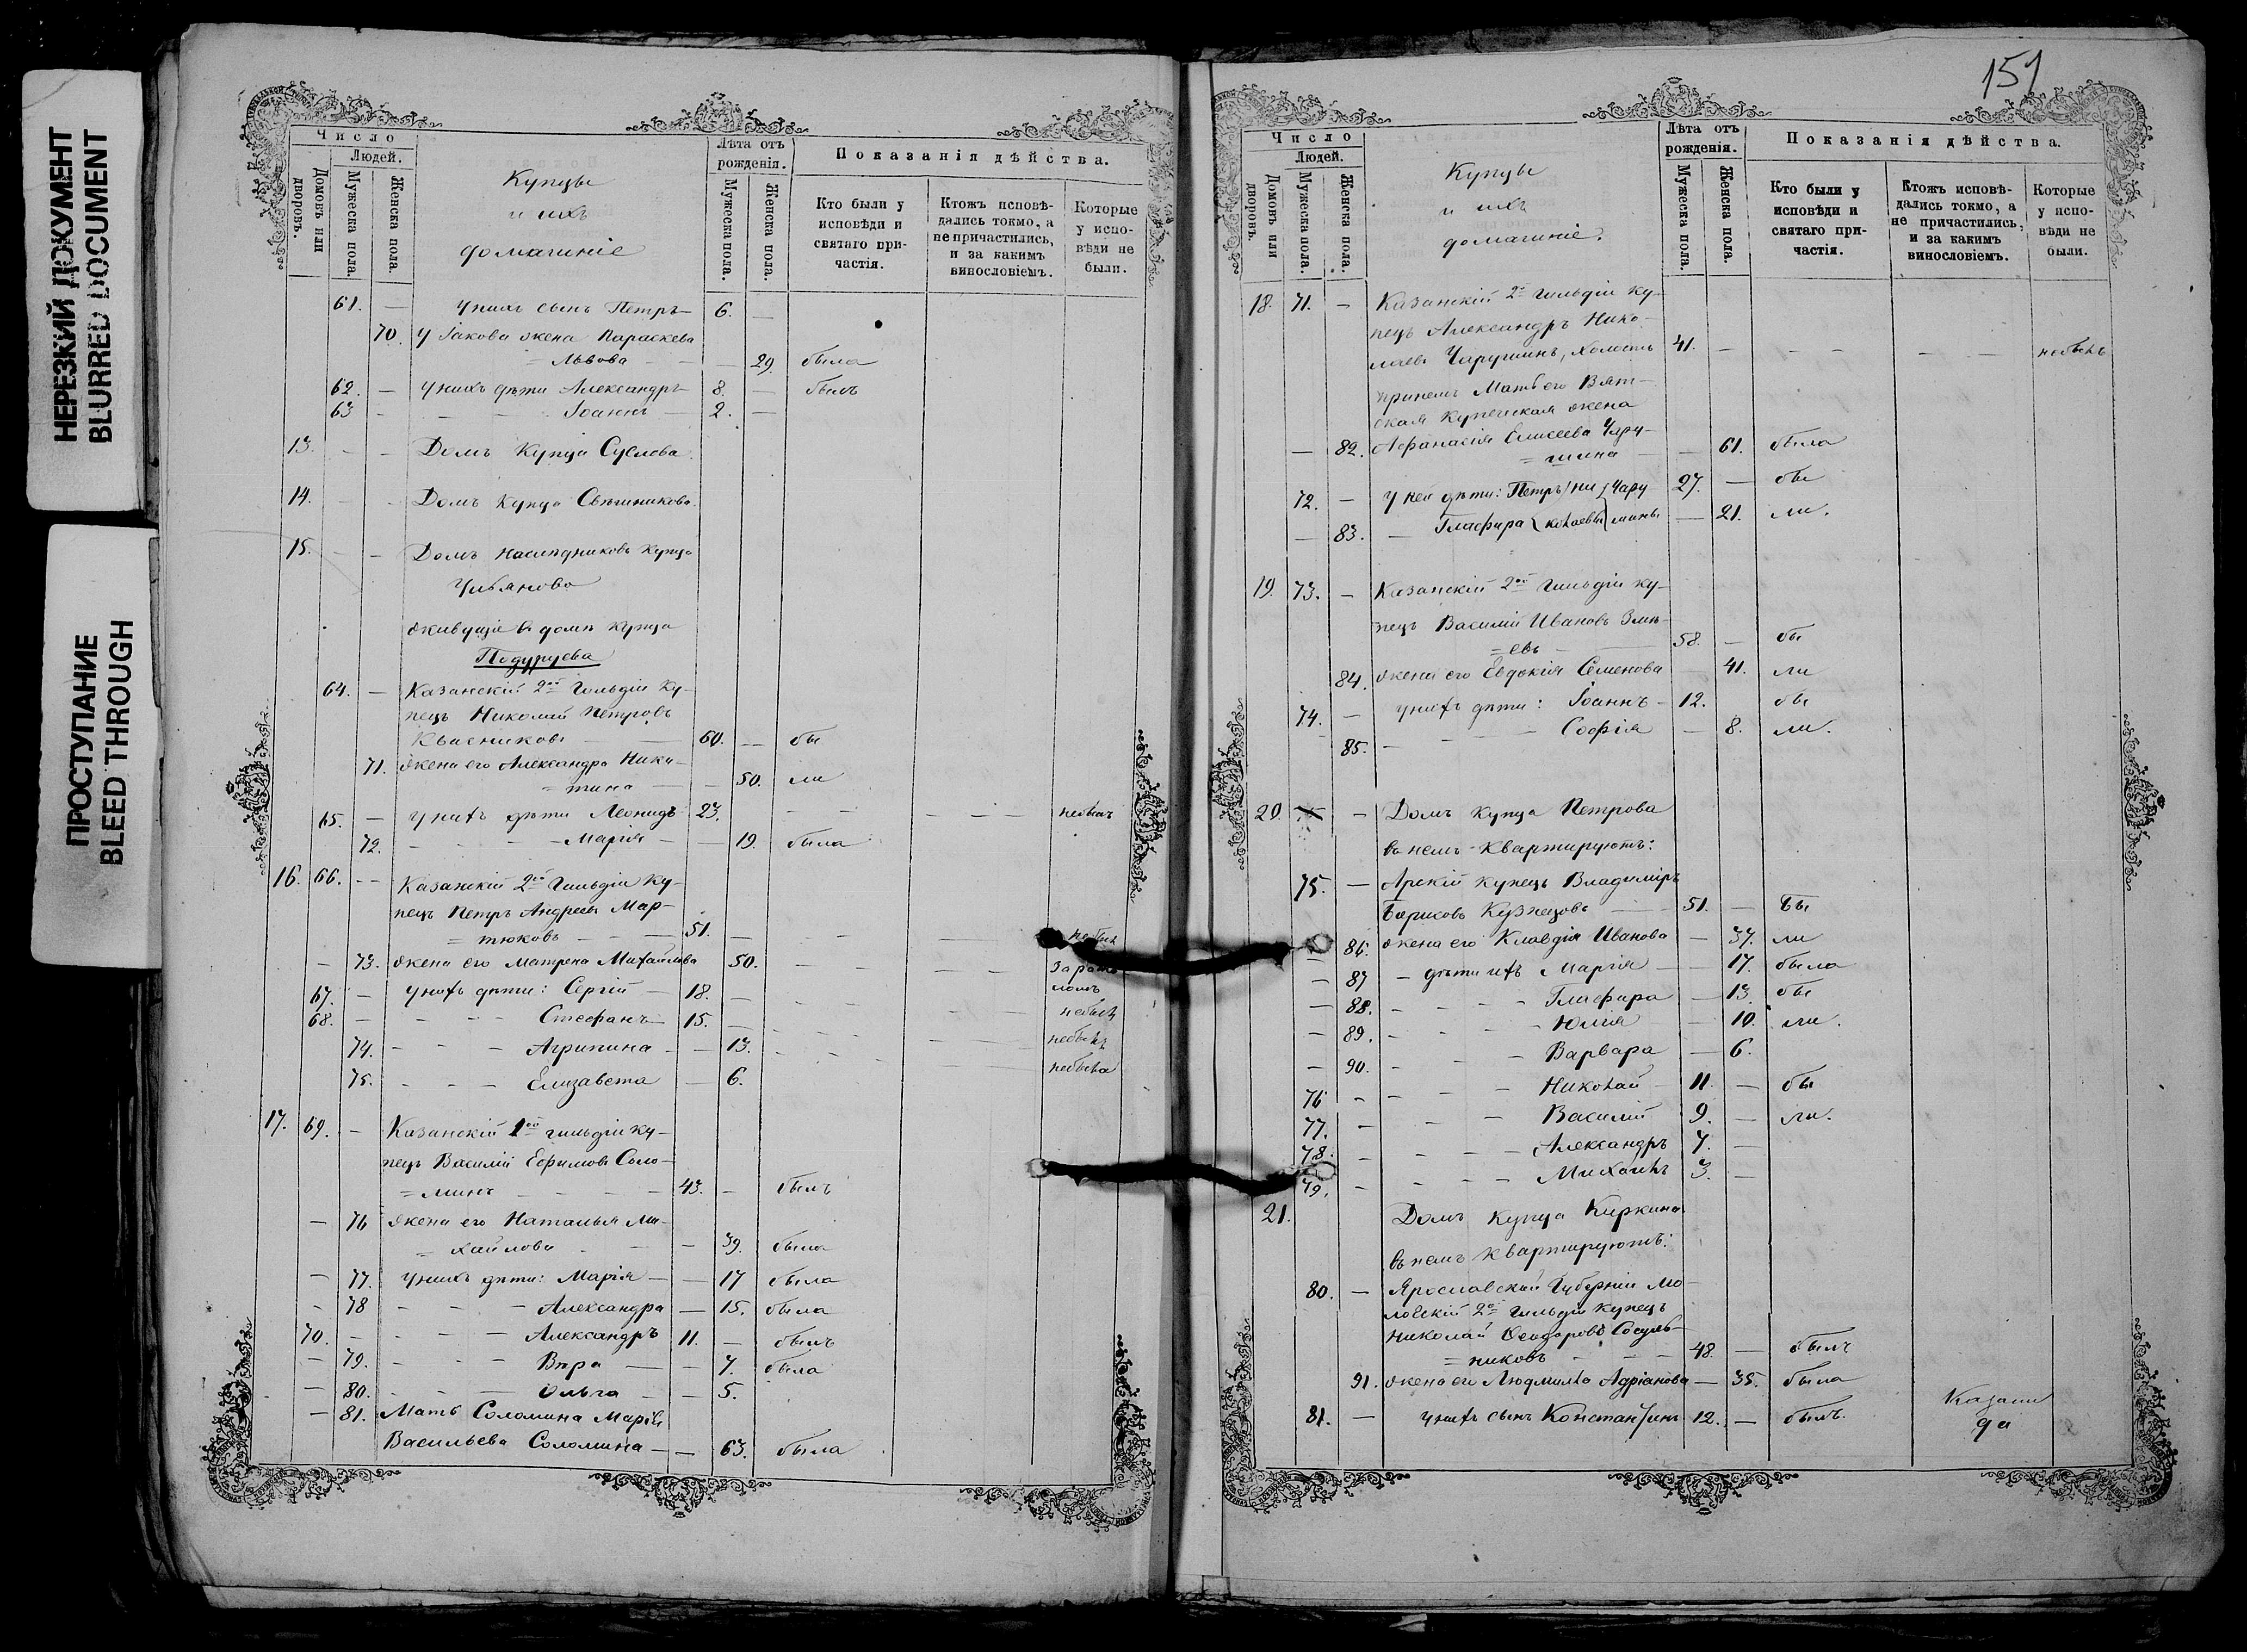 НЕРЕЗКИЙ ДОКУМЕНТ
BLURRED DOCUMENT
ПРОСТУПАНИЕ
BLEED THROUGH
Число
Людей.
Домовъ или дворовъ.
Мужеска пола.
Женска пола.
Купцы
и ихъ
домашніе
Лѣта отъ рожденія.
Мужеска пола.
Женска пола.
Показанія дѣйства.
Кто были у исповѣди и святаго причастія.
Ктожъ исповѣдались токмо, а не причастились, и за какимъ винословіемъ.
Которые у исповѣди не были.
61. — У нихъ сынъ Петръ — 6. —
70. У Іакова жена Параскева
= Львова — — 29 была
62. — У нихъ дѣти Александръ 8. — былъ
63 — — — Іоаннъ — 2. —
13. — — Домъ Купца Суслова
14. — — Домъ Купца Свѣшникова
15. — — Домъ наслѣдниковъ Купца
Чибянова
живущіе въ домѣ купца
Подуруева
64. — Казанскій 2ой Гильдіи Ку-
пецъ Николай Петровъ
Квасниковъ — 60. — бы
71. жена его Александра Ники-
= тина — — 50. ли
65. — У нихъ дѣти Леонидъ 23. — — — — — небылъ
72. — — — Марія — — 19. была
16. 66. — — Казанскій 2ой Гильдіи Ку-
пецъ Петръ Андреевъ Мар-
= тюковъ — — 51. — — — небыл
— 73. жена его Матрена Михайлова 50. — — — — за раско
ломъ
67. — У нихъ дѣти: Сергій — 18. — — — небылъ
68. — — — Стефанъ — 15. — — — небылъ
74. — — — Агрипина — — 13. — — — небыла
75. — — — Елизавета — 6.
17. 69. — Казанскій 1ой гильдіи ку-
пецъ Василій Ефимовъ Соло-
= минъ — — — 43. — былъ
— 76 жена его Наталья Ми-
= хайлова — — — 39. была
— 77. У нихъ дѣти: Марія — — 17 была
— 78 — — — Александра — 15. была
70. — — — — Александръ 11. — былъ
— 79. — — — Вѣра — — 7. была
— 80. — — — Ольга — — 5.
— 81. Мать Соломина Марія
Васильева Соломина — — 63. была
151
Число
Людей.
Домовъ или дворовъ.
Мужеска пола.
Женска пола.
Купцы
и ихъ
домашніе.
Лѣта отъ рожденія.
Мужеска пола.
Женска пола.
Показанія дѣйства.
Кто были у исповѣди и святаго причастія.
Ктожъ исповѣдались токмо, а не причастились, и за какимъ винословіемъ.
Которые у исповѣди не были.
18. 71. — Казанскій 2й Гильдіи ку-
пецъ Александръ Нико-
лаевъ Чарушинъ, холостъ 41. — — — — — небылъ
при немъ Мать его Вят-
ская Купеческая жена
— 82. Афанасія Елисеева Чару-
= шина — — 61. была
72. — У ней дѣти: Петръ Ни Чару 27. — бы
— 83. — Глафира колаевы шины — 21. ли.
19. 73. — Казанскій 2ой Гильдіи ку-
пецъ Василій Ивановъ Змѣ-
= евъ — 58. — бы
84. жена его Евдокія Семенова — 41. ли
74. — У нихъ дѣти: Іоаннъ — 12. бы
85. — — — Софія — 8. ли.
20 — Домъ Купца Петрова
въ немъ Квартируютъ:
75. — Арскій Купецъ Владиміръ
Борисовъ Кузнецовъ — 51. — бы
86. жена его Клавдія Иванова — 37. ли
— 87 — дѣти ихъ Марія — — 17. была
— 88. — — — Глафира — 13. бы
— 89. — — — Юлія — 10. ли.
— 90. — — — Варвара — 6.
76 — — — Николай — 11. — бы
77. — — — Василій 9. — ли.
78. — — — Александръ 7. —
79. — — — Михаилъ 3. —
21. Домъ купца Киркина
въ немъ квартируютъ:
80. — Ярославской Губерніи Мо-
ложскій 2й Гильдіи купецъ
Николай Феодоровъ
= никовъ — — 48. — былъ
91. жена его Людмила Адріанова — 35. была
81. — У нихъ сынъ Константинъ 12. — былъ.